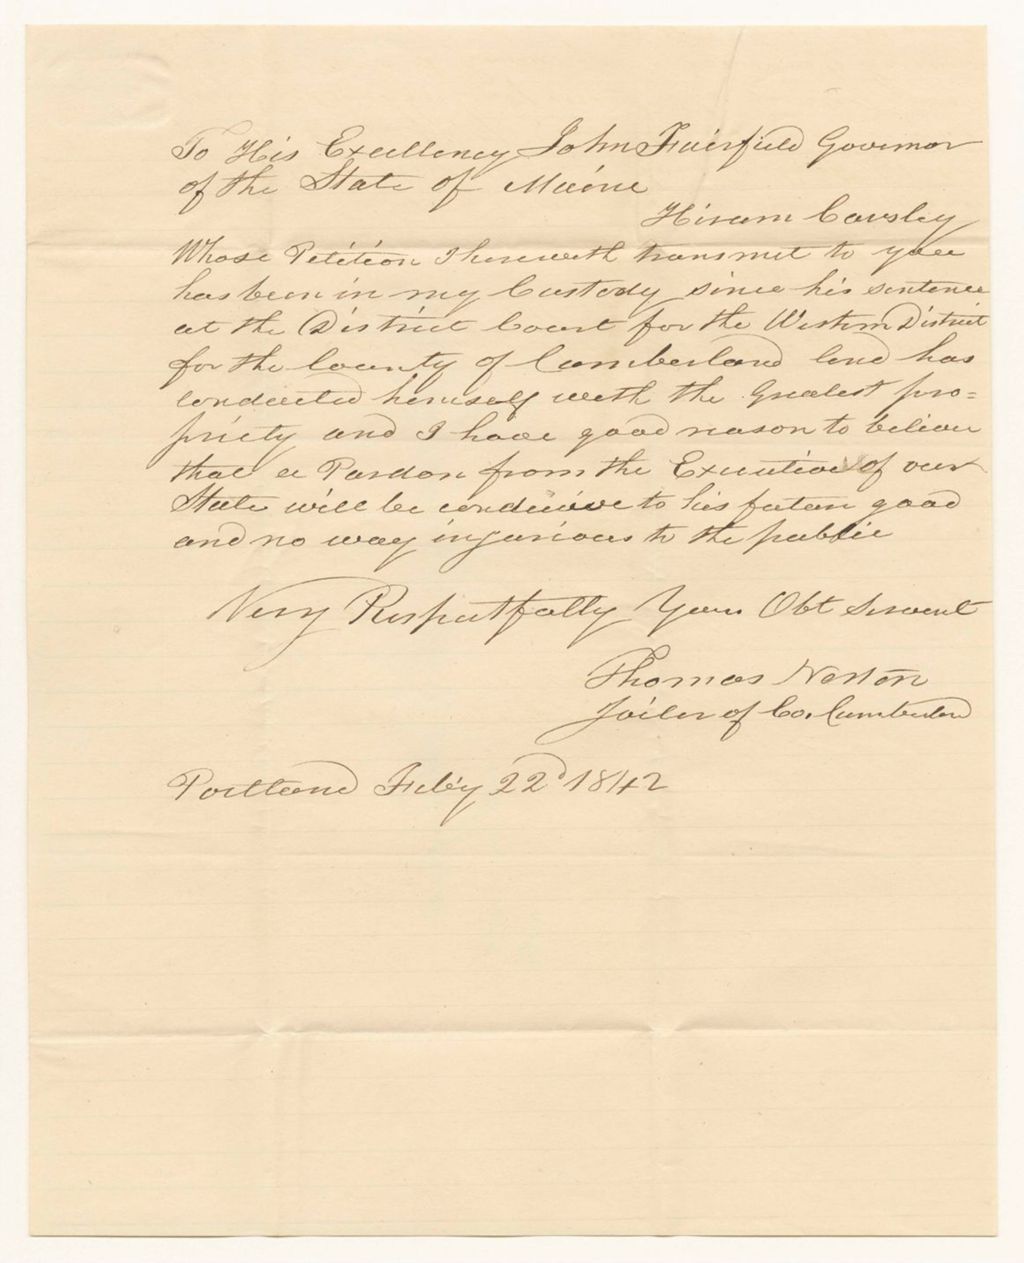 To His Excellency John Fairfield Governor
of the State of Maine
Hiram Cousley
Whose Petition I herewith transmit to you
has been in my Custody since his sentence
at the District Court for the Western District
for the County of Cumberland and has
conducted himself with the Greatest pro=
priety and I have good reason to believe
that a Pardon from the Executive of our
State will be conducive to his future good
and no way injurious to the public
Very Respectfully Your Obt Servent
Thomas Norton
Jailer of Co. Cumberland
Portland Feb'y 22d 1842